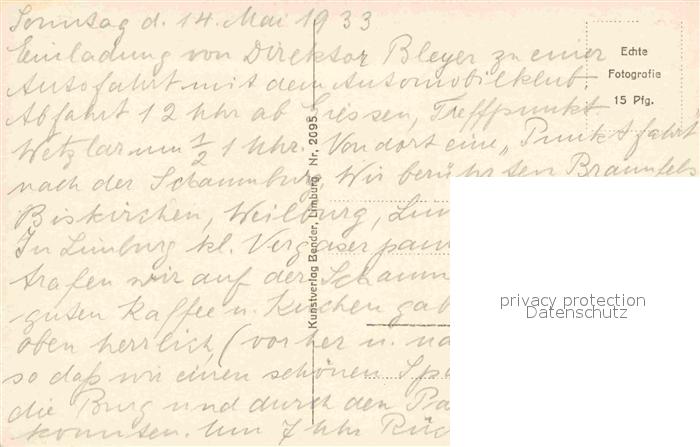 Sonntag d. 14. Mai 1933
Einladung von Direktor Bleyer zu einer
Autofahrt mit dem Automobilklub
Abfahrt 12 Uhr ab Giessen, Treffpunkt
Wetzlar um ½ 1 Uhr. Von dort eine „Punktfahrt"
nach der Schaumburg, Wir berührten Braunfels
Biskirchen, Weilburg, Lim
In Limburg kl. Vergaser pann
trafen wir auf der Schaum
guten Kaffee u. Kuchen gab
oben herrlich, (vorher u. na
so daß wir einen schönen Spa
die Burg und durch den Pa
konnten. Um 7 Uhr Rück
Kunstverlag Bender, Limburg Nr. 2095
Echte
Fotografie
15 Pfg.
privacy protection
Datenschutz